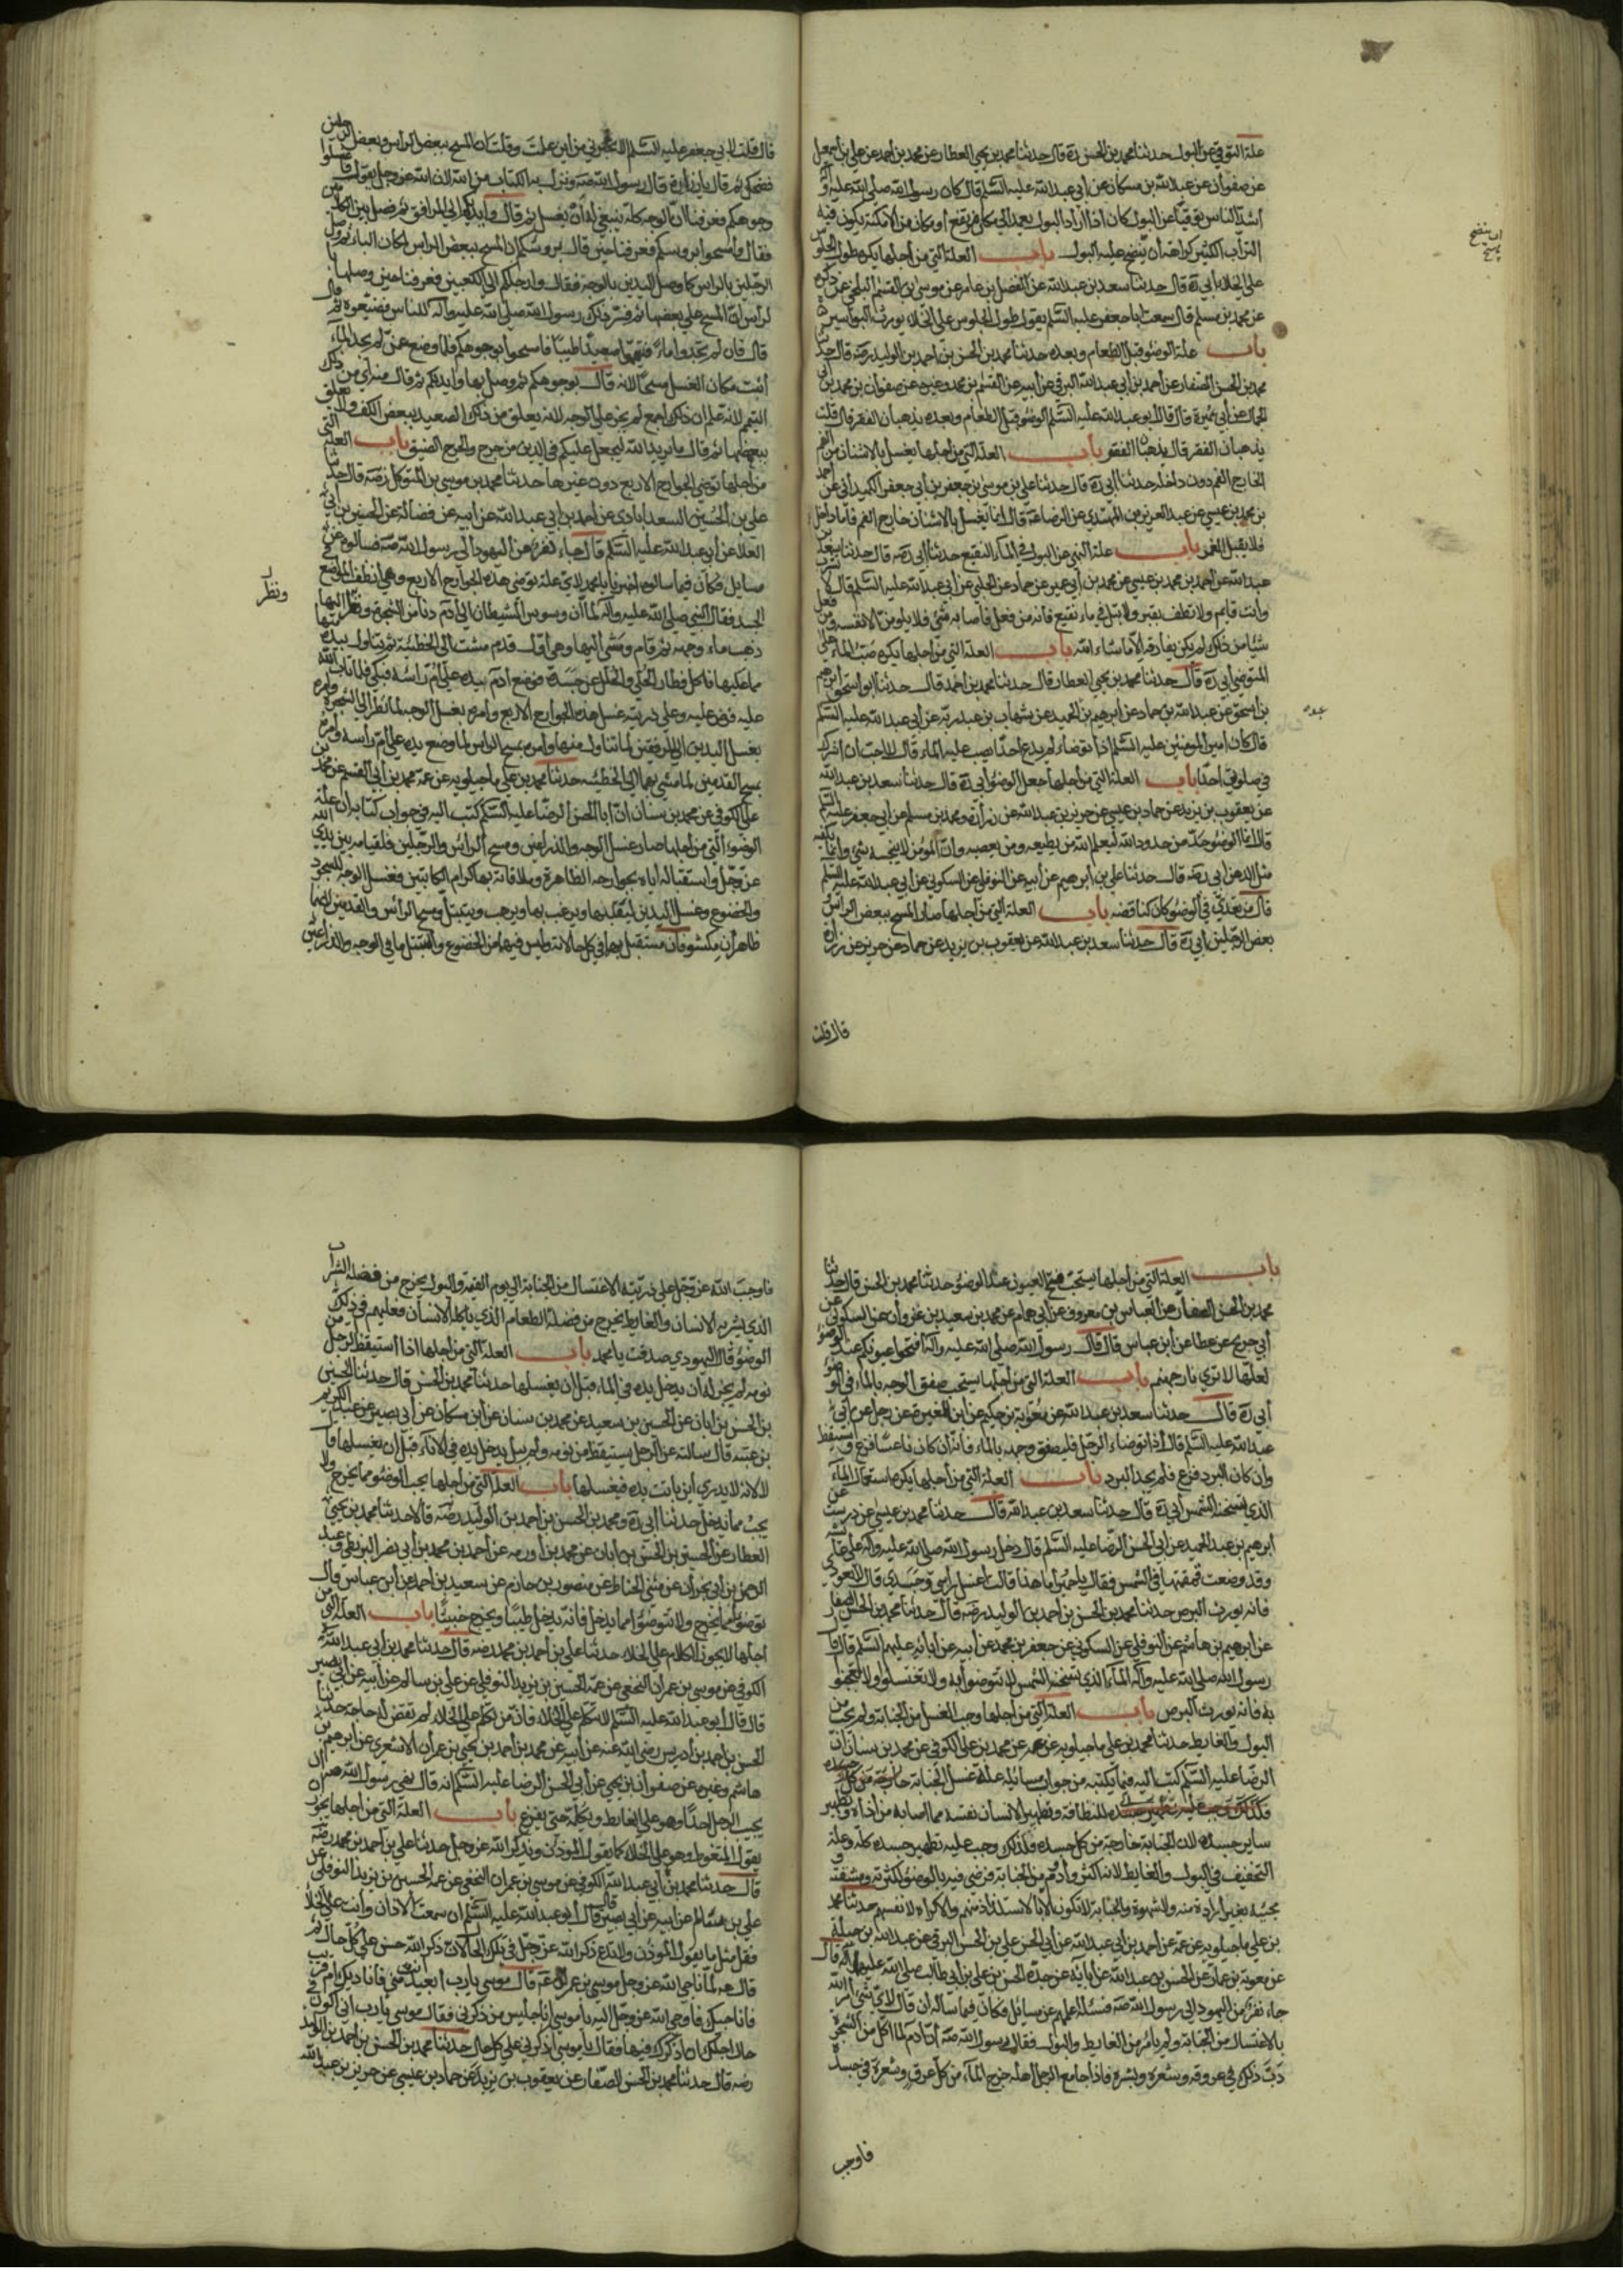 علة التوقي عن البول حدثنا محمد بن الحسن ره قال حدثنا محمد بن يحيى العطار عن محمد بن احمد عن علي بن اسمعيل
عن صفوان عن عبد الله بن مسكان عن ابي عبد الله عليه السلم قال كان رسول الله صلى الله عليه وآله
اشد الناس توقيا عن البول كان اذا اراد البول يعمد الى مكان مرتفع او مكان من الامكنة يكون فيه
التراب الكثير كراهة أن ينضح عليه البول باب العلة التي من اجلها يكره طول الجلوس
على الخلا ابي ره قال حدثنا سعد بن عبد الله عن الفضل بن عامر عن موسى بن القسم البجلي عمن ذكره
عن محمد بن مسلم قال سمعت ابا جعفر عليه السلم يقول طول الجلوس على الخلاء يورث البواسير
باب علة الوضو قبل الطعام وبعده حدثنا محمد بن الحسن بن احمد بن الوليد رضه قال حدثنا
محمد بن الحسن الصفار عن احمد بن ابي عبد الله البرقي عن ابيه عن القسم بن محمد وغيره عن صفوان بن محمد بن
الجمال عن ابي قال قال ابو عبد الله عليه السلم الوضو قبل الطعام وبعده يذهبان الفقر قال قلت
يذهبان الفقر قال يذهبان الفقر باب العلة التي من اجلها يغسل بالاشنان من الفم
الخارج الفم دون داخله حدثنا ابي ره قال حدثنا علي بن موسى بن جعفر بن ابي جعفر الكميداني عن احمد
بن محمد بن عيسى عن عبد العزيز بن المهتدي عن الرضا عه قال انما يغسل بالاشنان خارج الفم فاما داخل
فلا يقبل الغمر باب علة النهي عن البول في الماء النقيع حدثنا ابي رضه قال حدثنا سعد
عبد الله عن احمد بن محمد بن عيسى عن محمد بن ابي عمير عن حماد عن الحلبي عن ابي عبد الله عليه السلم قال لا تشرب
وانت قايم ولا تطف بقبر ولا تبل في ماء نقيع فانه من فعل فاصابه شيء فلا يلومن الا نفسه ومن فعل
شيئا من ذلك لم يكن يفارقه الا ما شاء الله باب العلة التي من اجلها يكره صب الماء على
المتوضي ابي ره قال حدثنا محمد بن يحيى العطار قال حدثنا محمد بن احمد قال حدثنا ابو اسحق ابرهيم
بن اسحق عن عبد الله بن حماد عن ابرهيم بن عبد الحميد عن شهاب بن عبد ربه عن ابي عبد الله عليه السلم
قال كان امير المومنين عليه السلم اذا توضاء لم يدع احدا يصب عليه الماء قال لا احب ان اشرك
في صلوتي احدا باب العلة التي من اجلها جعل الوضو ابي ره قال حدثنا سعد بن عبد الله
عن يعقوب بن يزيد عن حماد بن عيسى عن حريز بن عبد الله عن زرارة ومحمد بن مسلم عن ابي جعفر عليه السلم
قال انما الوضو حد من حدود الله ليعلم الله من يطيعه ومن يعصيه وان المؤمن لا ينجسه شيء وانما يكفيه
مثل الدهن ابي رضه قال حدثنا علي بن ابرهيم عن ابيه عن النوفلي عن السكوني عن ابي عبد الله عليه السلم
قال من تعدى في الوضو كان كناقضه باب العلة التي من اجلها صار المسح ببعض الراس
بعض الرجلين ابي ره قال حدثنا سعد بن عبد الله عن يعقوب بن يزيد عن حماد عن حريز عن زرارة
قال قلت
ان ينضح
قال قلت لابي جعفر عليه السلم الا تخبرني من اين علمت وقلت ان المسح ببعض الراس وبعض الرجلين
فضحك ثم قال يا زرارة قال رسول الله صه ونزل به الكتاب من الله لان الله عز وجل يقول فاغسلوا
وجوهكم فعرفنا ان الوجه كله ينبغي له أن يغسل ثم قال وايديكم الى المرافق ثم فصل بين الكلامين
فقال وامسحوا برؤسكم فعرفنا حين قال برؤسكم ان المسح ببعض الراس لمكان الباء ثم وصل
الرجلين بالراس كما وصل اليدين بالوجه فقال وارجلكم الى الكعبين فعرفنا حين وصلهما
لراس ان المسح على بعضها ثم فسر ذلك رسول الله صلى الله عليه وآله للناس فضيعوه ثم قال
قال فان لم تجدوا ماء فتيمموا صعيدا طيبا فامسحوا بوجوهكم فلما وضع عمن لم يجد الماء
اثبت مكان الغسل مسحا لانه قال بوجوهكم ثم وصل بها وايديكم ثم قال منه أي من ذلك
التيمم لانه علم ان ذلك اجمع لم يجر على الوجه لانه يعلق من ذلك الصعيد ببعض الكف ولا يعلق
ببعضها ثم قال ما يريد الله ليجعل عليكم في الدين من حرج والحرج الضيق باب العلة التي
من اجلها توضى الجوارح الاربع دون غيرها حدثنا محمد بن موسى بن المتوكل رضه قال حدثنا
علي بن الحسين السعدابادي عن احمد بن ابي عبد الله عن ابيه عن فضالة عن الحسين بن ابي
العلا عن ابي عبد الله عليه السلم قال جاء نفر من اليهود الى رسول الله صه فسالوه عن
مسايل فكان فيما سالوه اخبرنا يا محمد لاي علة توضى هذه الجوارح الاربع وهي انظف المواضع
الجسد فقال النبي صلى الله عليه وآله لما أن وسوس الشيطان الى آدم دنا من الشجرة ونظر اليها
ذهب ماء وجهه ثم قام ومشى اليها وهي أول قدم مشت الى الخطيئة ثم تناول بيده منها
مما عليها فاكل فطار الحلي والحلل عن جسده فوضع آدم يده على ام راسه فبكى فلما تاب الله
عليه فرض عليه وعلى ذريته غسل هذه الجوارح الاربع وامره بغسل الوجه لما نظر الى الشجرة وامره
بغسل اليدين الى المرفقين لما تناول منها وامره بمسح الراس لما وضع يده على ام راسه وامره
بمسح القدمين لما مشى بهما الى الخطيئه حدثنا محمد بن علي ماجيلويه عن عمه محمد بن ابي القسم عن محمد بن
علي الكوفي عن محمد بن سنان ان ابا الحسن الرضا عليه السلم كتب اليه في جواب كتابه ان علة
الوضوء التي من اجلها صار غسل الوجه والذراعين ومسح الراس والرجلين فلقيامه بين يدي الله
عز وجل واستقباله اياه بجوارحه الظاهرة وملاقاته بها كرام الكاتبين فغسل الوجه للسجود
والخضوع وغسل اليدين ليقلبهما ويرغب بهما ويرهب ويتبتل ومسح الراس والقدمين لانهما
ظاهران مكشوفان مستقبل بهما في كل حالاته وليس فيهما من الخضوع والتبتل ما في الوجه والذراعين
ونظر
باب العلة التي من اجلها يستحب فتح العيون عند الوضو حدثنا محمد بن الحسن قال حدثنا
محمد بن الحسن الصفار عن العباس بن معروف عن ابي همام عن محمد بن سعيد بن غزوان عن السكوني عن
أبي جريح عن عطا عن ابن عباس قال قال رسول الله صلى الله عليه وآله افتحوا عيونكم عند الوضو
لعلها لا ترى نار جهنم باب العلة التي من اجلها يستحب صفق الوجه بالماء في الوضو
أبي ره قال حدثنا سعد بن عبد الله عن معوية بن حكيم عن ابن المغيرة عن رجل عن ابي
عبد الله عليه السلم قال اذا توضاء الرجل فليصفق وجهه بالماء فانه ان كان ناعسا فزع واستيقظ
وان كان البرد فزع فلم يجد البرد باب العلة التي من اجلها يكره استعمال الماء
الذي تسخنه الشمس ابي ره قال حدثنا سعد بن عبد الله قال حدثنا محمد بن عيسى عن درست عن
ابرهيم بن عبد الحميد عن ابي الحسن الرضا عليه السلم قال دخل رسول الله صلى الله عليه وآله على عايشه
وقد وضعت قمقمتها في الشمس فقال يا حميرا ما هذا قالت اغسل راسي وجسدي قال لا تعودي
فانه يورث البرص حدثنا محمد بن الحسن بن احمد بن الوليد رضه قال حدثنا محمد بن الحسن الصفار
عن ابرهيم بن هاشم عن النوفلي عن السكوني عن جعفر بن محمد عن أبيه عن آبائه عليهم السلم قال قال
رسول الله صلى الله عليه وآله الماء الذي تسخنه الشمس لا تتوضوا به ولا تغتسلوا ولا تعجنوا
به فانه يورث البرص باب العلة التي من اجلها وجب الغسل من الجنابة ولم يجب من
البول والغايط حدثنا محمد بن علي ماجيلويه عن عمه عن محمد بن علي الكوفي عن محمد بن سنان ان
الرضا عليه السلم كتب اليه فيما كتب من جواب مسائله علة غسل الجنابة
للنظافة وتطهير الانسان نفسه مما اصابه من أذاه وتطهير
ساير جسده لان الجنابة خارجة من كل جسده فلذلك وجب عليه تطهير جسده كله وعلة
التخفيف في البول والغايط لانه اكثر وأدوم من الجنابة فرضي فيه بالوضو لكثرته ومشقته
مجيئه بغير ارادة منه ولا شهوة والجنابة لا تكون الا بالاستلذاذ منهم والاكراه لانفسهم حدثنا محمد
بن علي ماجيلويه عن عمه عن احمد بن ابي عبد الله عن ابي الحسن علي بن الحسن البرقي عن عبد الله بن جبلة
عن معوية بن عمار عن الحسن بن عبد الله عن آبائه عن جده الحسن بن علي بن ابي طالب صلى الله عليهما قال
جاء نفر من اليهود الى رسول الله صه فسئله اعلمهم عن مسائل فكان فيما ساله ان قال لاي شيء امر الله
بالاغتسال من الجنابة ولم يامر من الغايط والبول فقال رسول الله صه ان آدم لما اكل من الشجرة
دب ذلك في عروقه وشعره وبشره فاذا جامع الرجل اهله خرج الماء من كل عرق وشعرة في جسده
فاوجب
فاوجب الله عز وجل على ذريته الاغتسال من الجنابة الى يوم القيمة والبول يخرج من فضلة الشراب
الذي يشربه الانسان والغايط يخرج من فضلة الطعام الذي ياكله الانسان فعليهم في ذلك
الوضو قال اليهودي صدقت يا محمد باب العلة التي من اجلها اذا استيقظ الرجل من
نومه لم يجز له أن يدخل يده في الماء قبل ان يغسلها حدثنا محمد بن الحسن قال حدثنا الحسين
بن الحسن بن ابان عن الحسين بن سعيد عن محمد بن سنان عن ابن مسكان عن أبي بصير عن عبد الكريم
بن عتبه قال سالته عن الرجل يستيقظ من نومه ولم يبل يدخل يده في الاناء قبل ان يغسلها قال
لا لانه لا يدري أين باتت يده فيغسلها باب العلة التي من اجلها يجب الوضو مما يخرج ولا
يجب مما يدخل حدثنا ابي ره ومحمد بن الحسن بن احمد بن الوليد رضه قالا حدثنا محمد بن يحيى
العطار عن الحسين بن الحسن بن أبان عن محمد بن اورمه عن احمد بن محمد بن أبي نصر البزنطي وعبد
الرحمن بن ابي نجران عن مثنى الحناط عن منصور بن حازم عن سعيد بن احمد عن ابن عباس قال
توضوا مما يخرج ولا تتوضوا مما يدخل فانه يدخل طيبا ويخرج خبيثا باب العلة التي من
اجلها لا يجوز الكلام على الخلاء حدثنا علي بن احمد بن محمد رضه قال حدثنا محمد بن أبي عبد الله
الكوفي عن موسى بن عمران النخعي عن عمه الحسين بن يزيد النوفلي عن علي بن سالم عن أبيه عن ابي بصير
قال قال أبو عبد الله عليه السلم لا تتكلم على الخلاء فان من تكلم على الخلاء لم تقض له حاجة حدثنا
الحسين بن احمد بن ادريس رضي الله عنه عن ابيه عن محمد بن احمد بن يحيى بن عمران الاشعري عن ابرهيم بن
هاشم وغيره عن صفوان بن يحيى عن أبي الحسن الرضا عليه السلم انه قال نهى رسول الله صه ان
يجيب الرجل احدا وهو على الغايط ويكلمه حتى يفرغ باب العلة التي من اجلها يجوز ان
يقول المتغوط وهو على الخلاء كما يقول المؤذن ويذكر الله عز وجل حدثنا علي بن احمد بن محمد رضه
قال حدثنا محمد بن أبي عبد الله الكوفي عن موسى بن عمران النخعي عن عمه الحسين بن يزيد النوفلي عن
علي بن سالم عن ابيه عن ابي بصير قال قال أبو عبد الله عليه السلم ان سمعت الاذان وانت على الخلا
فقل مثل ما يقول المؤذن ولا تدع ذكر الله عز وجل في تلك الحال لان ذكر الله حسن على كل حال ثم
قال عه لما ناجى الله عز وجل موسى بن عمران عه قال موسى يا رب ابعيد انت مني فاناديك ام قريب
فاناجيك فاوحى الله عز وجل اليه يا موسى انا جليس من ذكرني فقال موسى يا رب اني اكون في
حال اجلك ان اذكرك فيها فقال يا موسى اذكرني على كل حال حدثنا محمد بن الحسن بن احمد بن الوليد
رضه قال حدثنا محمد بن الحسن الصفار عن يعقوب بن يزيد عن حماد بن عيسى عن حريز بن عبد الله